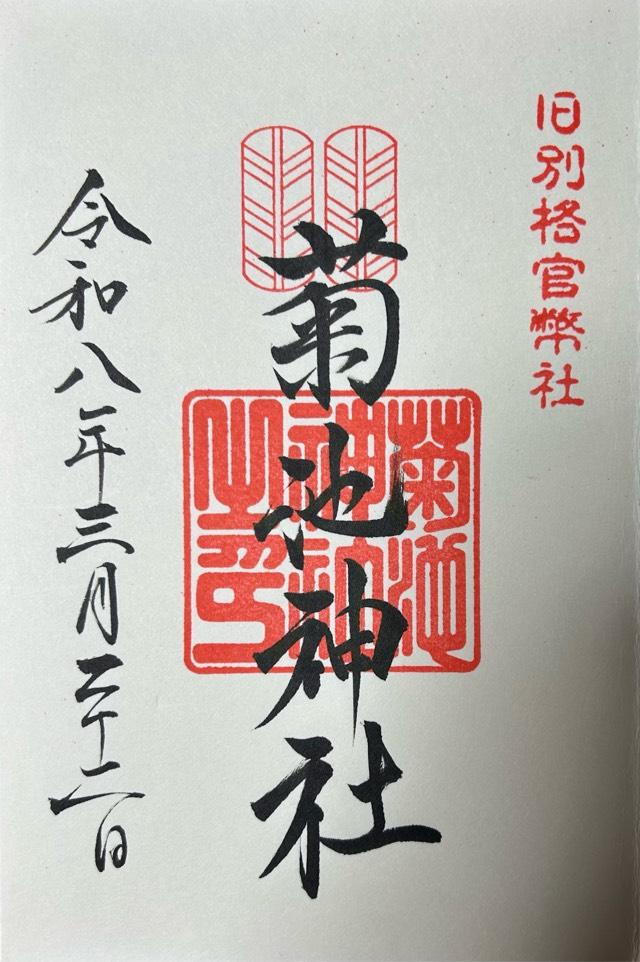 旧別格官幣社
菊池神社
菊池神社之印
令和八年三月二十二日